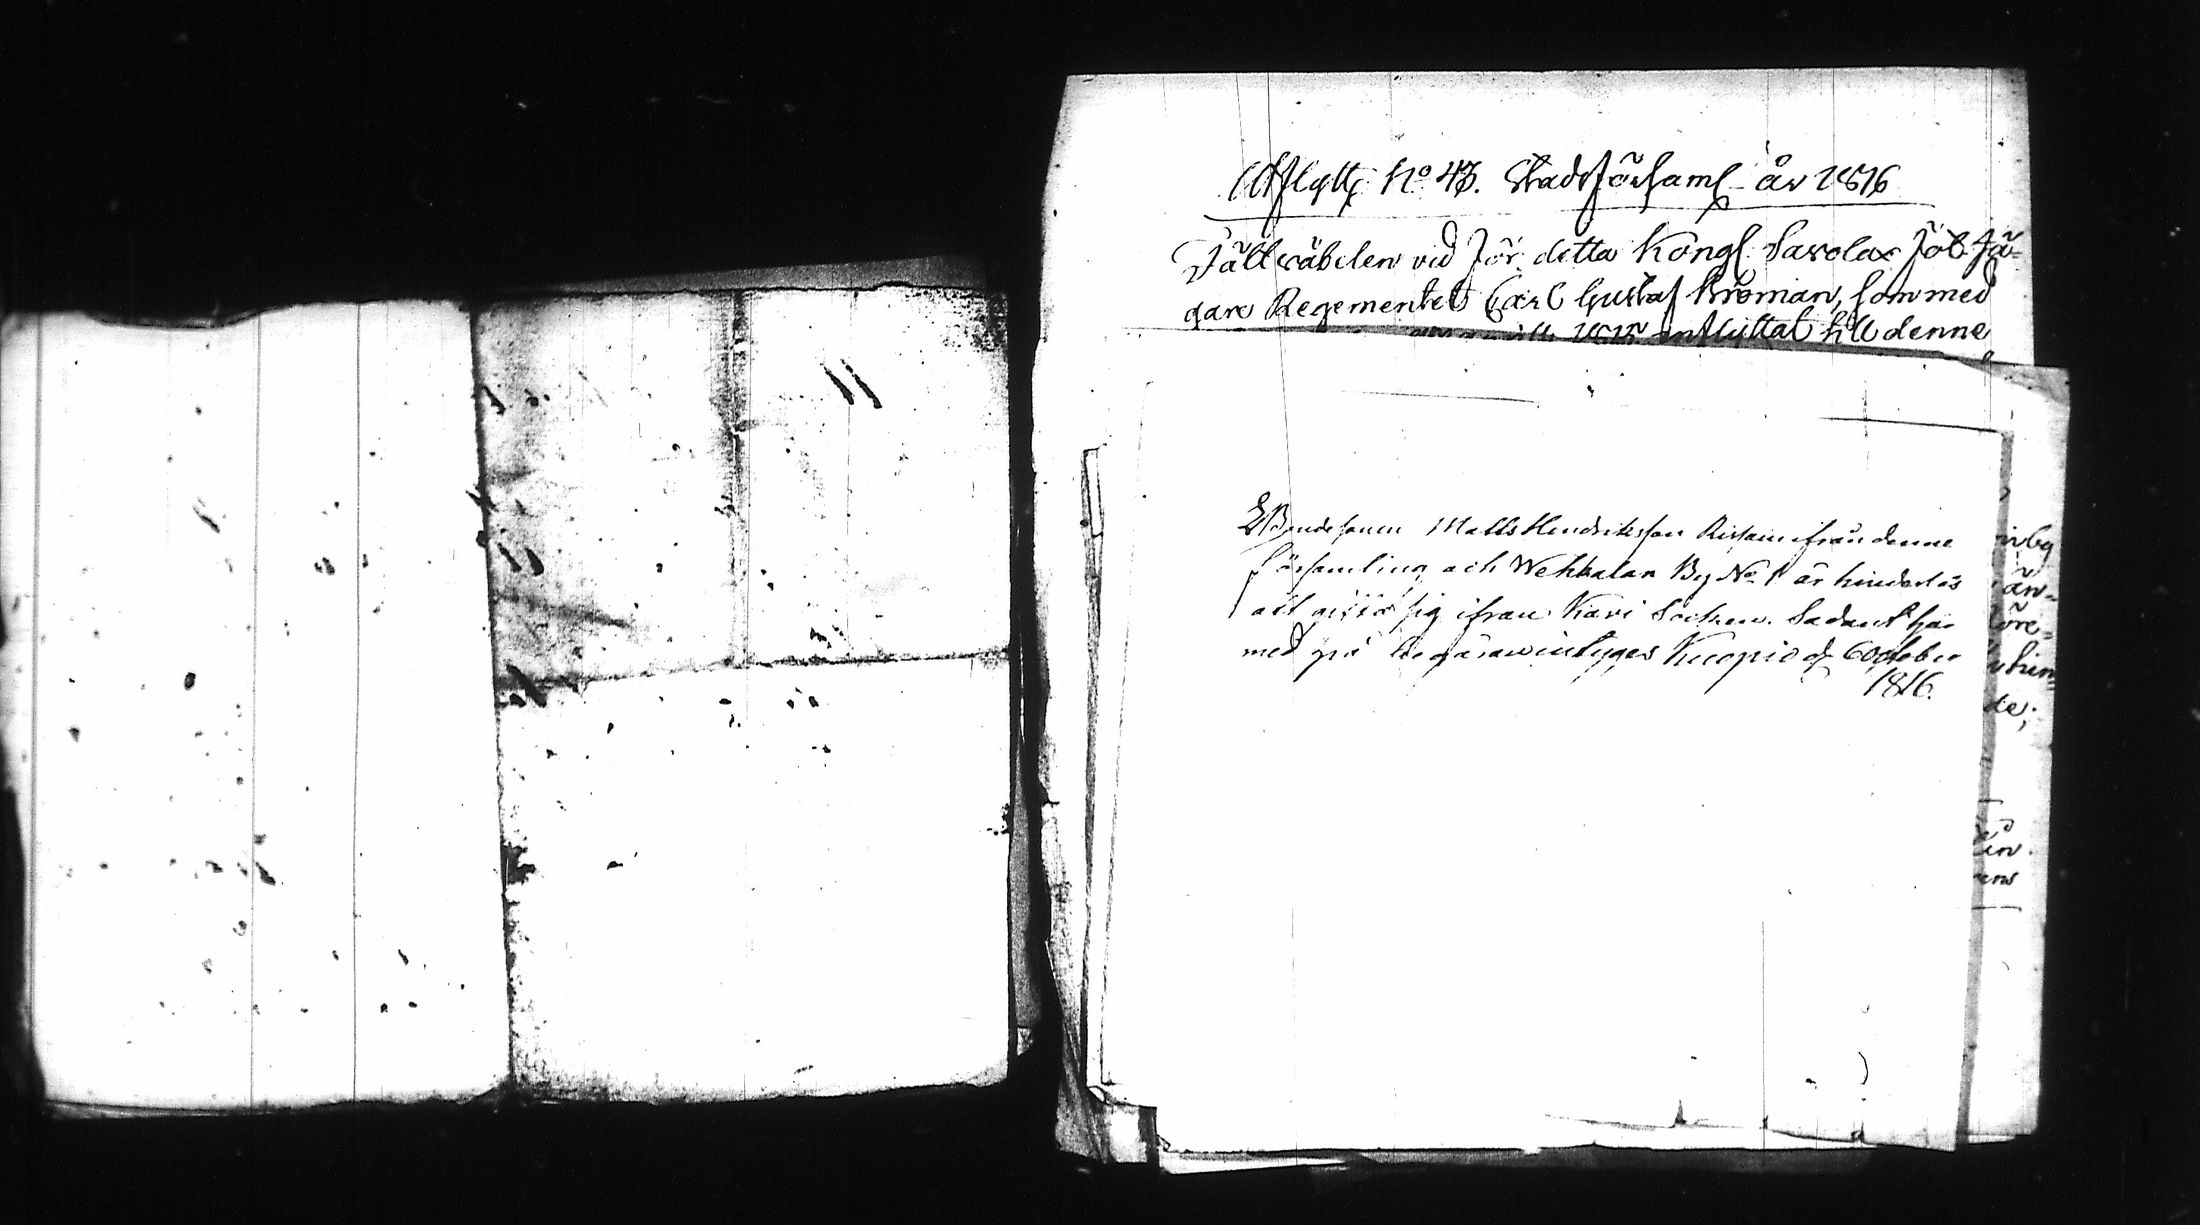 Utflyttn No 43. Stadsförsaml. år 1816
Fältväbelen vid för detta Kongl Savolax Fot Jä-
gare Regementet Carl Gustaf Kroman, som med
1815 inflyttat till denne
Bondesonen Matts Hendriksson Rissain ifrån denne
församling och Wehkalan By No 1 är hinderlös
att gifta sig ifran Kavi Socken. Sadant här
med på begäran intyges Kuopio d 6 October
1816.
än-
öre-
de;